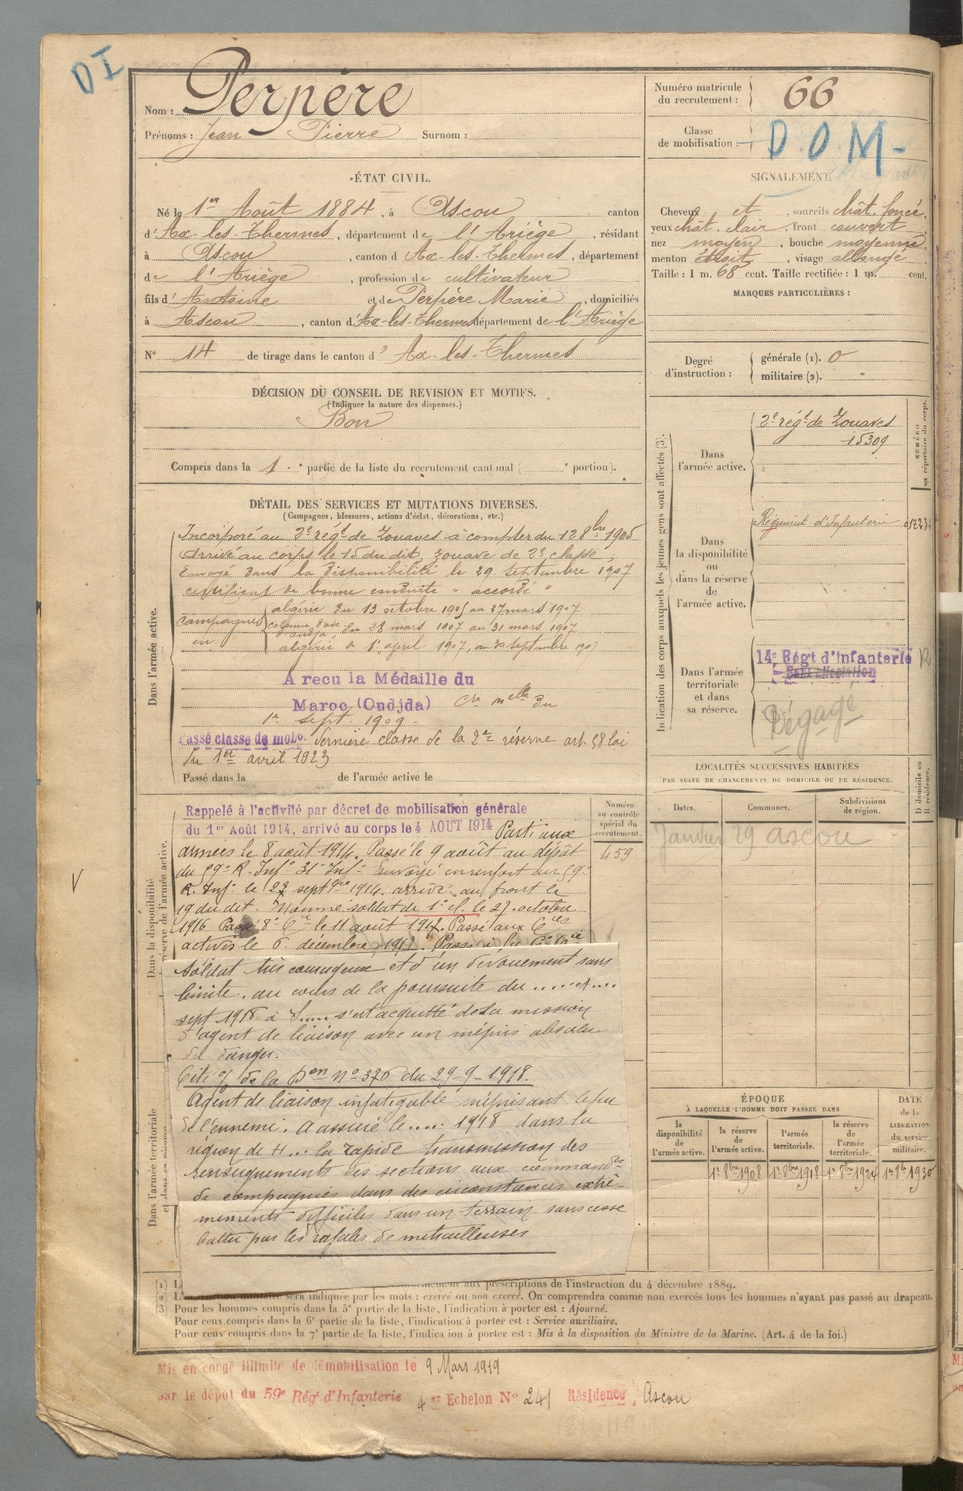 DI
Nom : Perpère
Prénoms : Jean Pierre Surnom :
Numéro matricule du recrutement : 66
Classe de mobilisation : D.O.M-
ÉTAT CIVIL.
Né le 1er Août 1884, à Ascou canton
d'Ax-les-Thermes, département de l'Ariège, résidant
à Ascou, canton d'Ax-les-Thermes, département
de l'Ariège, profession de cultivateur
fils d'Antoine et de Perpère Marie, domiciliés
à Ascou, canton d'Ax-les-Thermes département de l'Ariège
N° 14 de tirage dans le canton d'Ax-les-Thermes
SIGNALEMENT.
Cheveux et, sourcils chât. foncé,
yeux chât. clair, front couvert,
nez moyen, bouche moyenne,
menton étroit, visage allongé
Taille : 1 m. 68 cent. Taille rectifiée : 1 m. cent.
MARQUES PARTICULIÈRES :
Degré d'instruction : générale (1). 0
militaire (2). "
DÉCISION DU CONSEIL DE REVISION ET MOTIFS.
(Indiquer la nature des dispenses.)
Bon
Compris dans la 1e partie de la liste du recrutement cantonal ( e portion).
DÉTAIL DES SERVICES ET MUTATIONS DIVERSES.
(Campagnes, blessures, actions d'éclat, décorations, etc.)
Dans l'armée active.
Incorporé au 2e régt de Zouaves à compter du 12 8bre 1905
Arrivé au corps le 15 du dit, zouave de 2e classe,
Envoyé dans la disponibilité le 29 Septembre 1907
certificat de bonne conduite "accordé"
Campagnes en
algérie du 13 octobre 1905 au 27 mars 1907
28 mars 1907 au 31 mars 1907
algérie 1er april 1907, au 30 septembre 1907
A reçu la Médaille du
Maroc (Oudjda)
1er sept. 1909
Passé classe de mob. dernière classe de la 2e réserve art 58 loi
du 1er avril 1923
Passé dans la de l'armée active le
Dans la disponibilité
réserve de l'armée active.
Rappelé à l'activité par décret de mobilisation générale
du 1er Août 1914, arrivé au corps le 4 AOUT 1914 Parti aux
armées le 8 août 1914. Passé le 9 août au dépôt
du 59e R. Infie Envoyé en renfort au 59e
R. Inf. le 22 sept 1914. arrivé au front le
19 du dit. Nommé soldat de 1e cl. le 27 octobre
1916 Passé 8e Cie le 11 août 1917. Passé aux Cies
actives le 6 décembre 1917.
Numéro au contrôle spécial du recrutement.
459
soldat très courageux et d'un dévouement sans
limite. au cours de la poursuite du .... et ....
sept 1918 à S.... s'est acquitté de sa mission
d'agent de liaison avec un mépris absolu
du danger.
Cité o/ de la Don n° 370 du 29-9-1918.
Agent de liaison infatigable méprisant le feu
de l'ennemi. A assuré le .... 1918 dans la
région de H... la rapide transmission des
renseignements des sections aux commandts
de compagnies dans des circonstances extrê-
mements difficiles dans un terrain sans cesse
battu par les rafales de mitrailleuses
Dans l'armée territoriale
Indication des corps auxquels les jeunes gens sont affectés (3).
NUMÉRO au répertoire du corps.
Dans l'armée active.
2e régt de Zouaves
15309
Dans la disponibilité ou dans la réserve de l'armée active.
Régiment d'Infanterie
Dans l'armée territoriale et dans sa réserve.
14e Régt d'Infanterie
Dégagé
LOCALITÉS SUCCESSIVES HABITÉES
PAR SUITE DE CHANGEMENTS DE DOMICILE OU DE RÉSIDENCE.
D domicile ou R résidence.
Dates. Communes. Subdivisions de région.
Janvier 29 ascou
ÉPOQUE
À LAQUELLE L'HOMME DOIT PASSER DANS
DATE de la LIBÉRATION du service militaire.
la disponibilité de l'armée active.
la réserve de l'armée active.
l'armée territoriale.
la réserve de l'armée territoriale.
1er 8bre 1908 1er 8bre 1918 1er 8bre 1924 1er 8bre 1930
aux prescriptions de l'instruction du 4 décembre 1889.
sera indiquée par les mots : exercé ou non exercé. On comprendra comme non exercés tous les hommes n'ayant pas passé au drapeau.
(3) Pour les hommes compris dans la 5e partie de la liste, l'indication à porter est : Ajourné.
Pour ceux compris dans la 6e partie de la liste, l'indication à porter est : Service auxiliaire.
Pour ceux compris dans la 7e partie de la liste, l'indication à porter est : Mis à la disposition du Ministre de la Marine. (Art. 4 de la loi.)
Mis en congé illimité de démobilisation le 9 Mars 1919
par le dépôt du 59e Régt d'Infanterie 4er Echelon N° 241 Résidence, Ascou